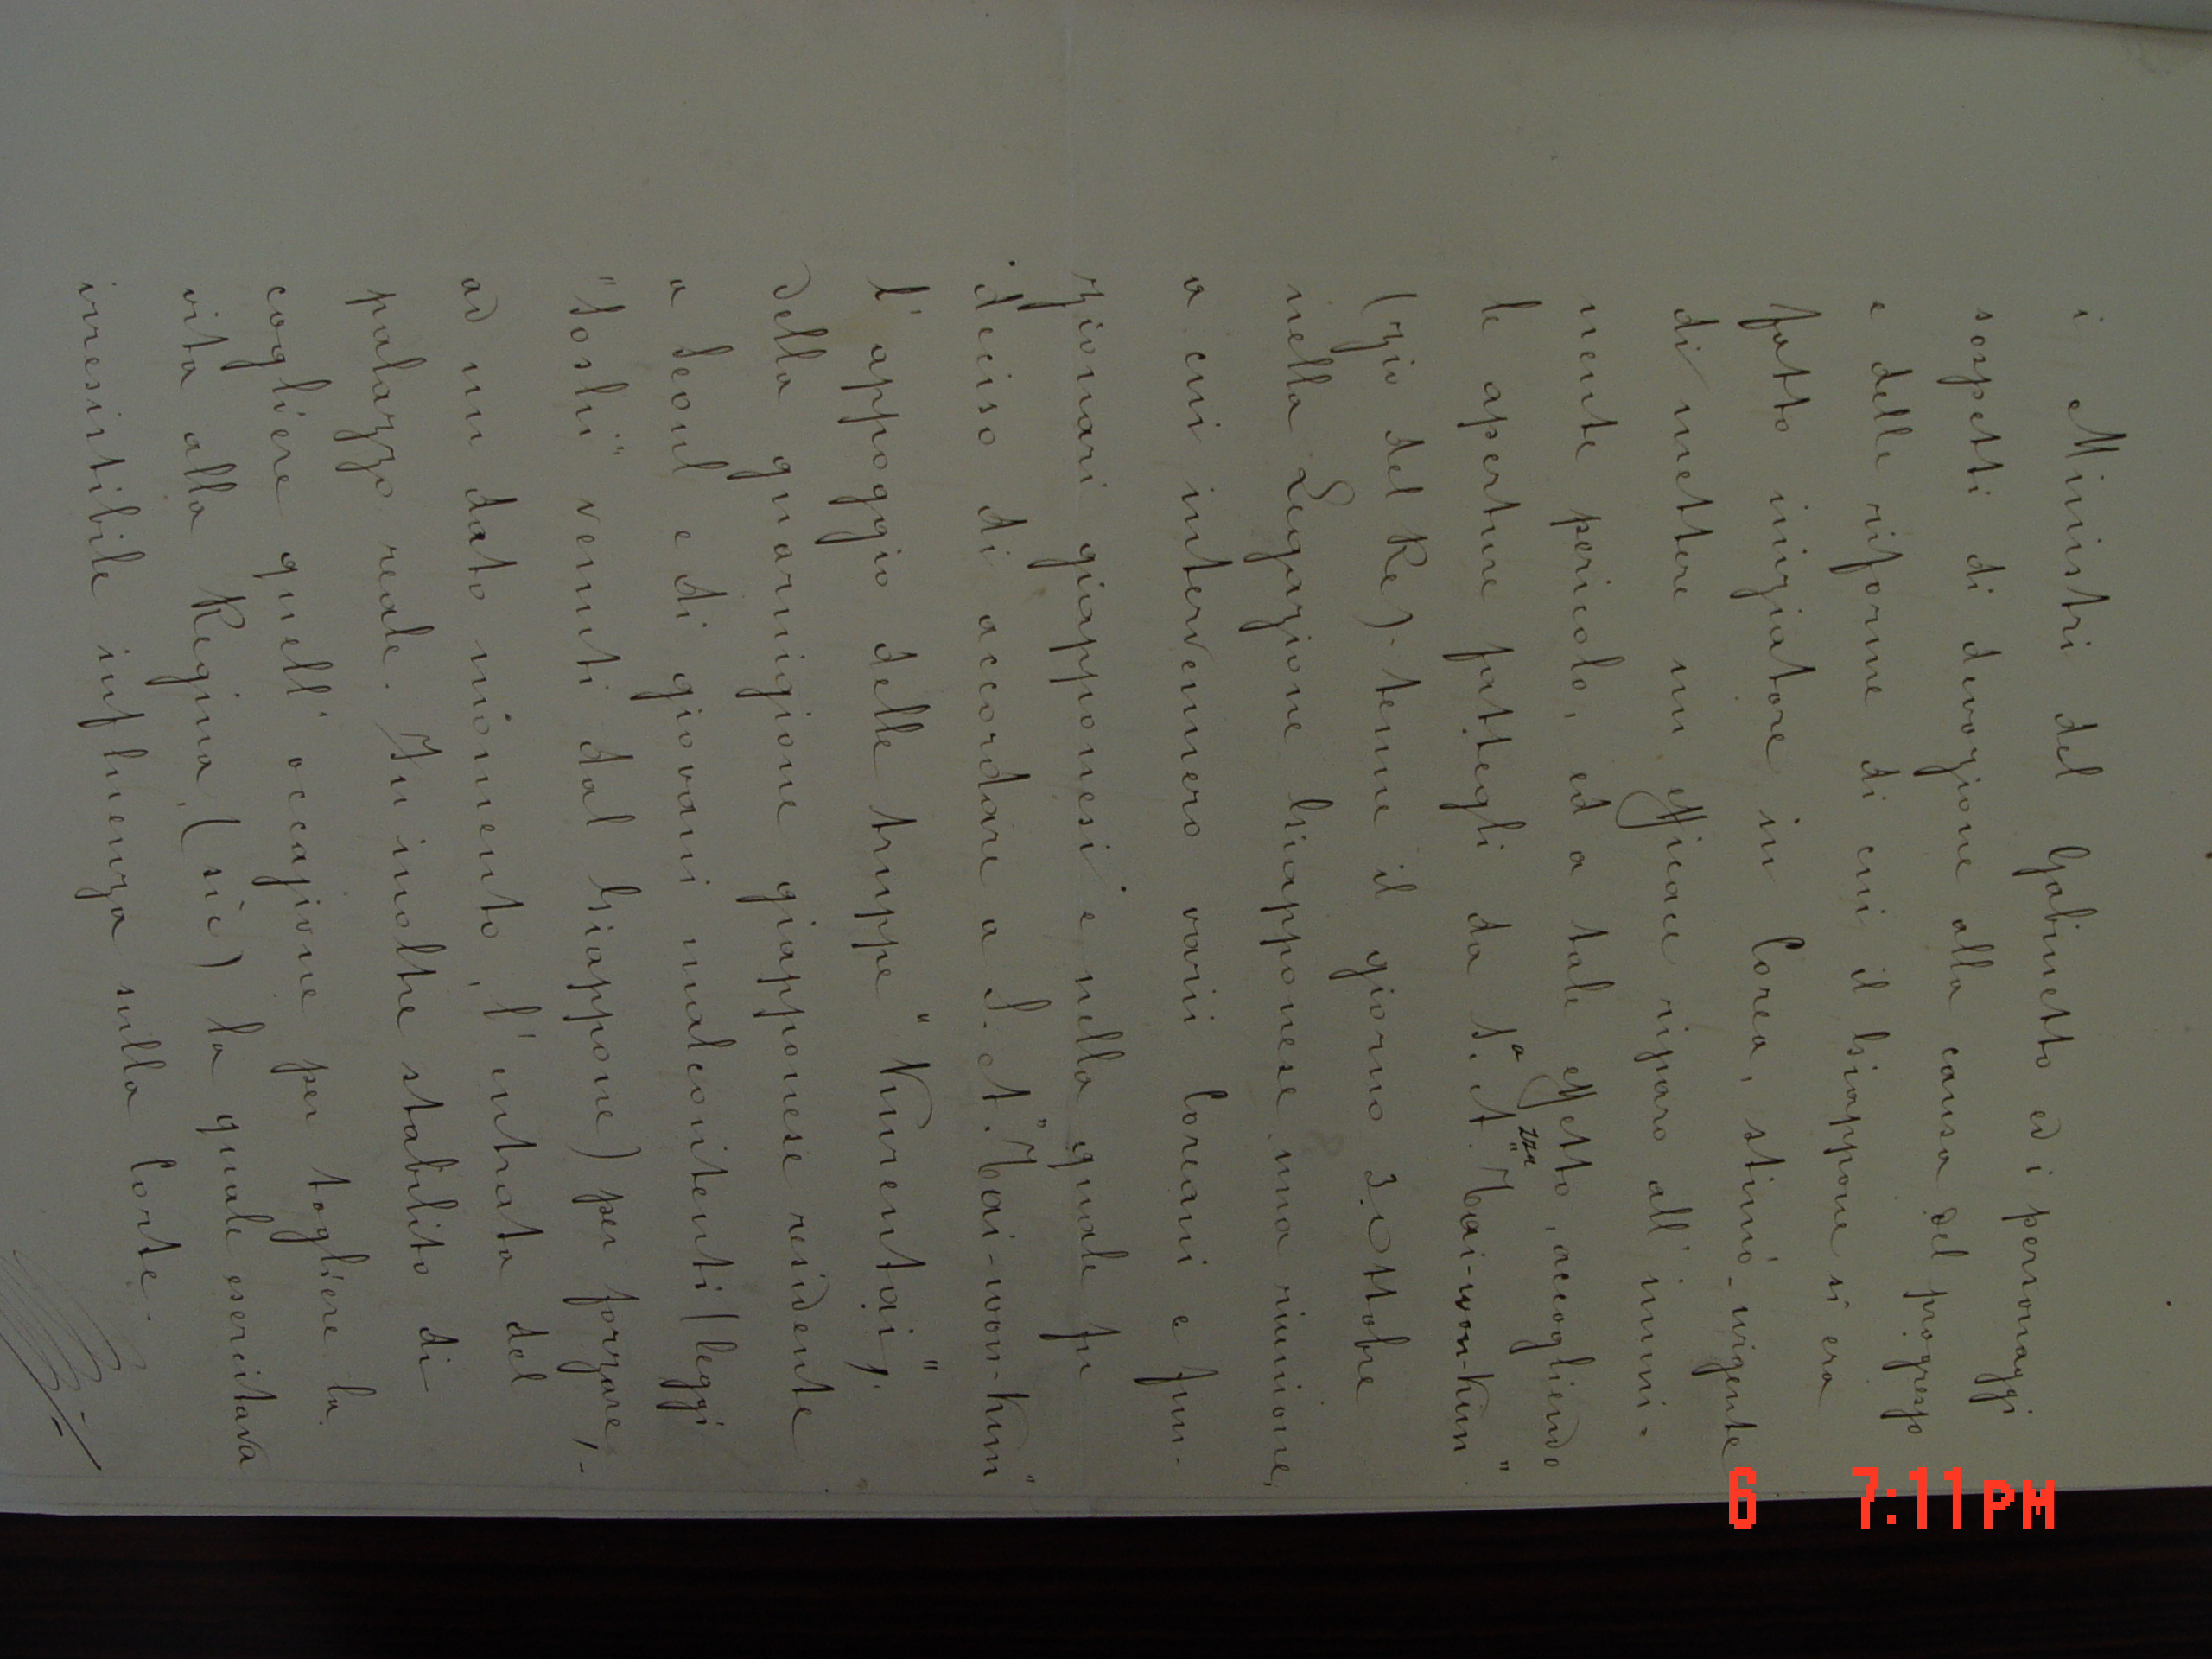 i Ministri del Gabinetto ed i personaggi
sospetti di devozione alla causa del progresso
e delle riforme di cui il Giappone si era
fatto iniziatore in Corea, stimò urgente
di mettere un efficace riparo all' immi-
nente pericolo, ed a tale effetto, accogliendo
le aperture fattegli da S.A. "Tai-won-Kun"
(zio del Re) tenne il giorno 3 Ottobre
nella Legazione Giapponese una riunione,
a cui intervennero varii Coreani e fun-
zionari giapponesi e nella quale fu
deciso di accordare a S. A. "Tai-won-Kun"
l' appoggio delle truppe "Kunrentai",
della guarnigione giapponese residente
a Seoul e di giovani malcontenti (leggi
"Soshi" venuti dal Giappone) per forzare,
ad un dato momento, l' entrata del
palazzo reale. Fu inoltre stabilito di
cogliere quell' occasione per togliere la
vita alla Regina, (sic) la quale esercitava
irresistibile influenza sulla Corte.
6 7:11PM